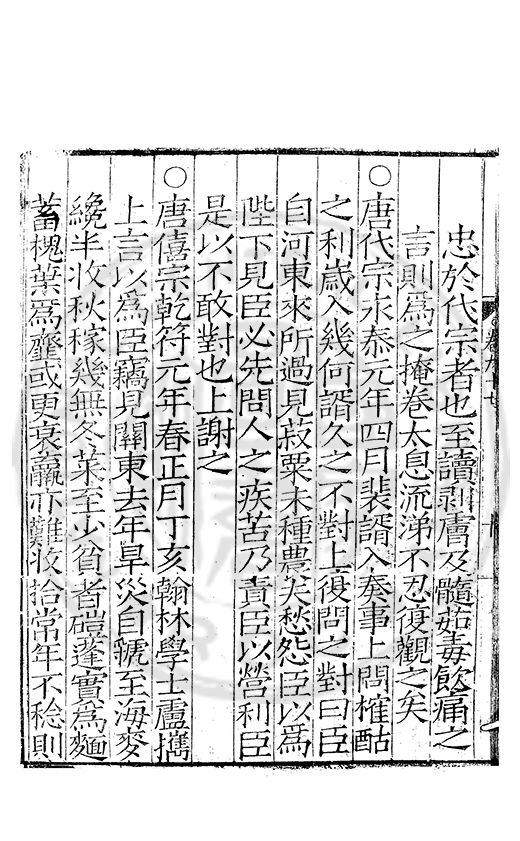 忠於代宗者也至讀剥膚及髓茹毒飲痛之
言則爲之掩卷太息流涕不忍復觀之矣
○唐代宗永泰元年四月裴諝入奏事上問榷酤
之利歲入幾何諝久之不對上復問之對曰臣
自河東來所過見菽粟未種農夫愁怨臣以爲
陛下見臣必先問人之疾苦乃責臣以營利臣
是以不敢對也上謝之
○唐僖宗乾符元年春正月丁亥翰林學士盧攜
上言以爲臣竊見關東去年旱災自虢至海麥
纔半收秋稼幾無冬菜至少貧者磑蓬實爲麵
蓄槐葉爲虀或更衰羸亦難收拾常年不稔則